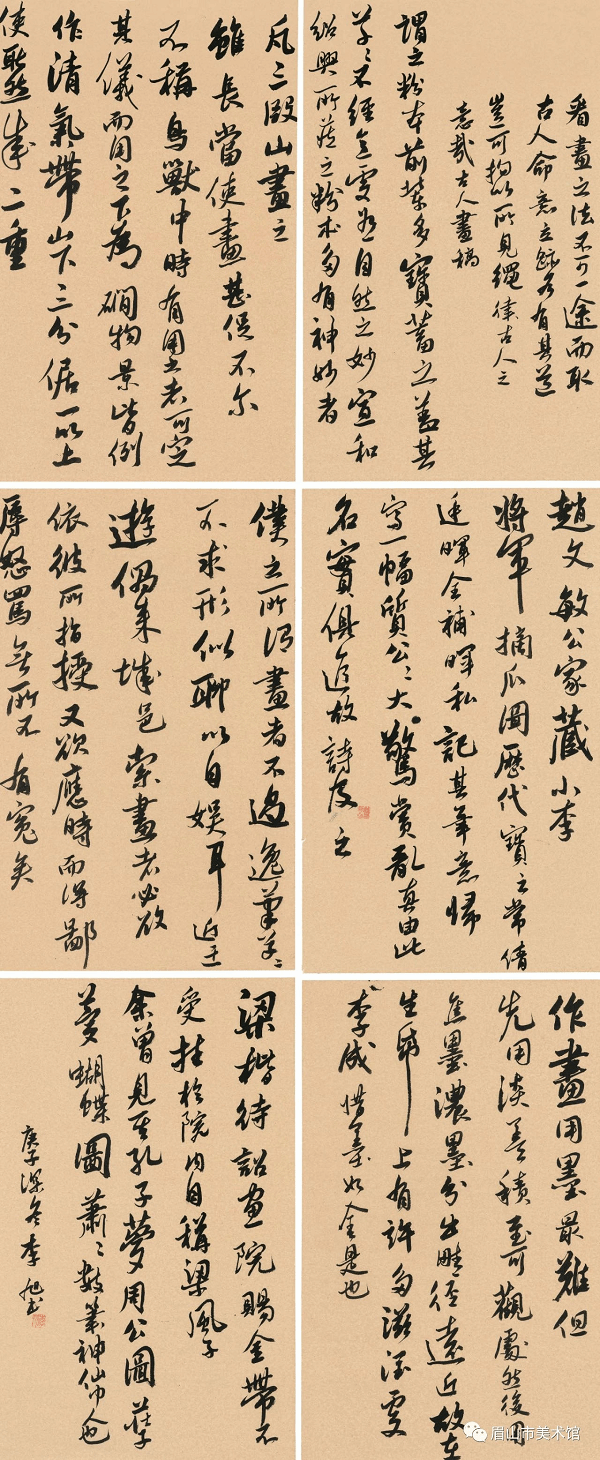 看畫之法不可一途而取
古人命意立跡各有其道
豈可拘以所見繩律古人之
意哉古人畫稿
謂之粉本前輩多寶蓄之蓋其
草々不經意處有自然之妙宣和
紹興所藏之粉本多有神妙者
凡三段山畫之
雖長當使畫甚促不尔
不稱鳥獸中時有用之者可定
其儀而用之下為磵物景皆例
作清氣帶山下三分倨一以上
使耿然成二重
趙文敏公家藏小李
將軍摘瓜圖歷代寶之常倩
廷暉全補暉私記其筆意歸
寫一幅質公々大驚賞亂真由此
名實俱進故詩及之
僕之所謂畫者不過逸筆草々
不求形似聊以自娛耳近迂
遊偶來城邑索畫者必欲
依彼所指授又欲應時而得鄙
辱怒罵無所不有冤矣
作畫用墨最難但
先用淡墨積至可觀處然後用
焦墨濃墨分出畦徑遠近故在
生紙上有許多滋潤處
李成惜墨如金是也
梁楷待詔畫院賜金帶不
受挂於院內自稱梁風子
余曾見其孔子夢周公圖莊子
夢蝴蝶圖蕭々數筆神仙也
庚子深冬李旭書
眉山市美术馆